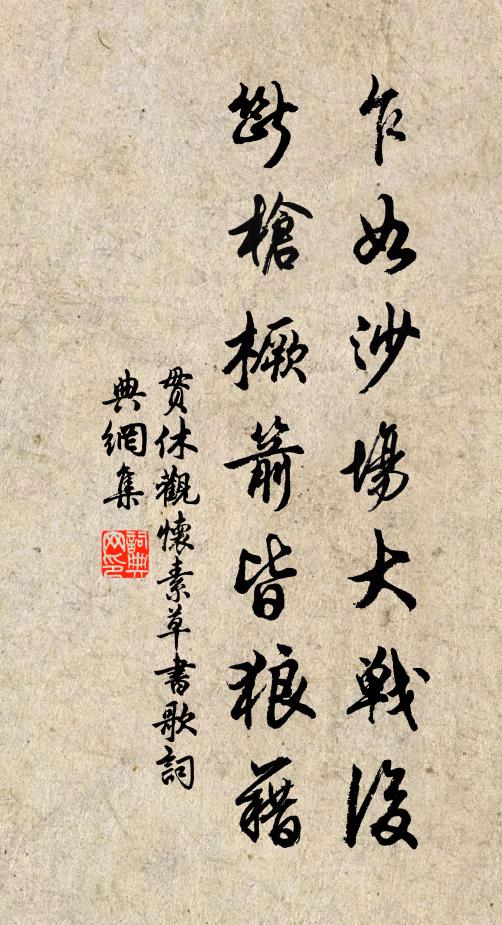 乍如沙場大戰後
斷槍橛箭皆狼藉
貫休觀懷素草書歌詞
典網集
詞典網印